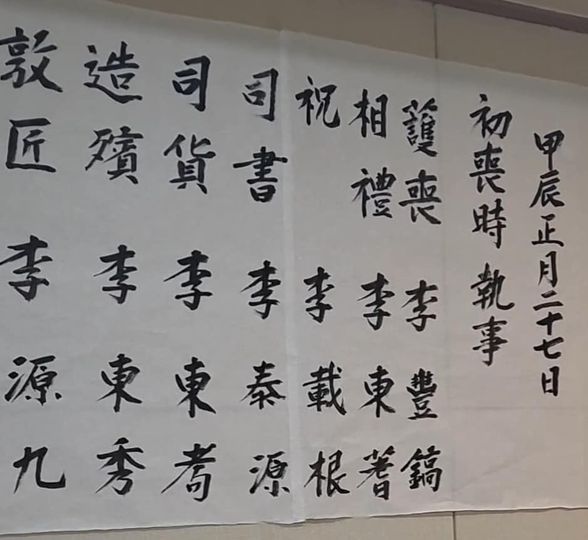 甲辰正月二十七日
初喪時執事
護喪 李豐鎬
相禮 李東蓍
祝 李載根
司書 李泰源
司貨 李東耈
造殯 李東秀
敦匠 李源九